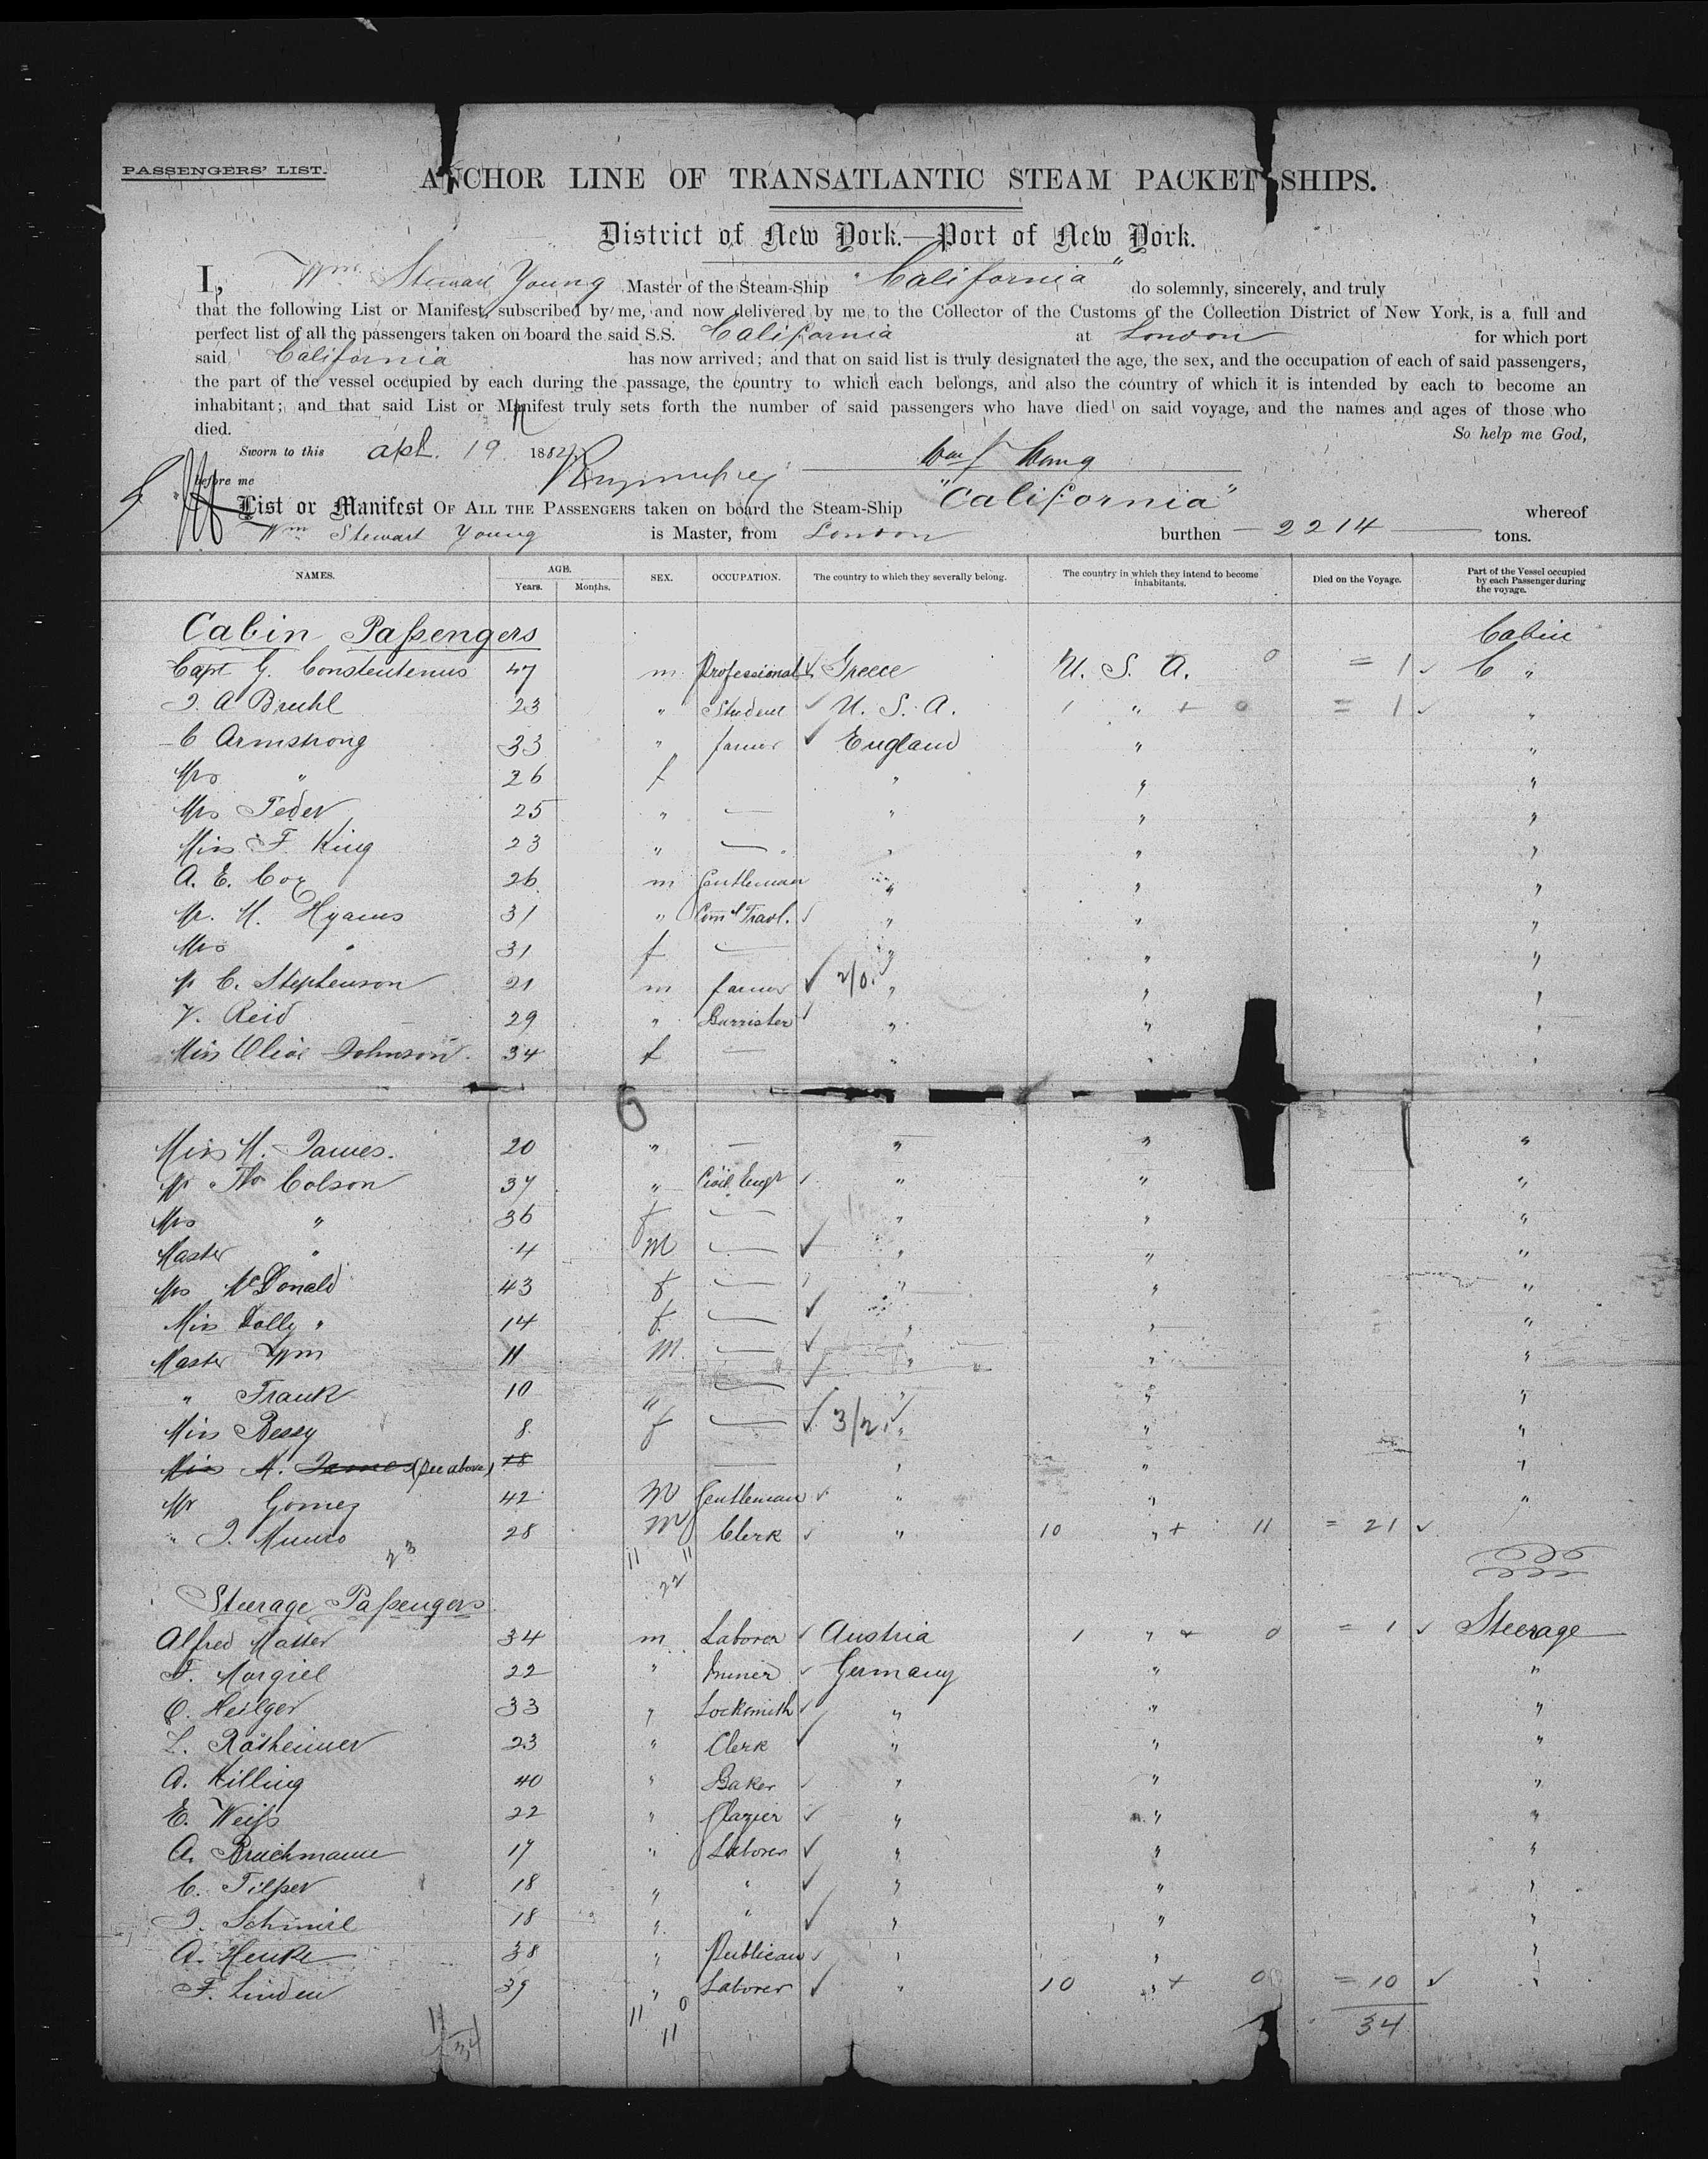 PASSENGERS' LIST.
ANCHOR LINE OF TRANSATLANTIC STEAM PACKET SHIPS.
District of New York.—Port of New York.
I, Wm. Stewart Young Master of the Steam-Ship "California" do solemnly, sincerely, and truly
that the following List or Manifest, subscribed by me, and now delivered by me to the Collector of the Customs of the Collection District of New York, is a full and
perfect list of all the passengers taken on board the said S.S. California at London for which port
said California has now arrived; and that on said list is truly designated the age, the sex, and the occupation of each of said passengers,
the part of the vessel occupied by each during the passage, the country to which each belongs, and also the country of which it is intended by each to become an
inhabitant; and that said List or Manifest truly sets forth the number of said passengers who have died on said voyage, and the names and ages of those who
died. So help me God,
Sworn to this apl. 19 1882
before me
List or Manifest OF ALL THE PASSENGERS taken on board the Steam-Ship "California" whereof
Wm Stewart Young is Master, from London burthen — 2214 — tons.
NAMES. AGE. Years. Months. SEX. OCCUPATION. The country to which they severally belong. The country in which they intend to become inhabitants. Died on the Voyage. Part of the Vessel occupied by each Passenger during the voyage.
Cabin Passengers Cabin
Capt G. Constentenus 47 m Professional ✓ Greece U. S. A. 0 = 1 ✓ C "
J. A Bruhl 23 " Student ✓ U. S. A. 1 " + 0 = 1 ✓ "
C Armstrong 33 " farmer ✓ England " "
Mrs " 26 f " " "
Mrs Feder 25 " — " " "
Miss F. King 23 " — " " "
A. E. Cox 26 m Gentleman " " "
Mr. H. Hyams 31 " Comml Travl. ✓ " " "
Mrs " 31 f — " " "
Mr C. Stephenson 21 m farmer ✓ 2/0. " " "
V. Reid 29 " Barrister ✓ " " "
Miss Johnson 34 f — " " "
6
Miss M. James. 20 " — " " "
Mr Thos Colson 37 " Civil Engr ✓ " " "
Mrs " 36 f — " " "
Master " 4 M — ✓ " " "
Mrs McDonald 43 f — " " "
Miss Dolly " 14 f — ✓ " " "
Master Wm 11 M — ✓ " " "
" Frank 10 " — ✓ " " "
Miss Bessy 8 f — ✓ 3/2. " " "
Miss M. James (see above) 18 — " " "
Mr Gomez 42 M Gentleman ✓ " " "
" J. Munro 28 M Clerk ✓ " 10 " + 11 = 21 ✓
23 11 11
22
Steerage Passengers
Alfred Matter 34 m Laborer ✓ Austria 1 " + 0 = 1 ✓ Steerage
F. Margiel 22 " Miner ✓ Germany " "
O. Heilger 33 " Locksmith ✓ " " "
L. Ratheimer 23 " Clerk ✓ " " "
A. Killing 40 " Baker ✓ " " "
E. Weiss 22 " Glazier ✓ " " "
A. Bruchmann 17 " Laborer ✓ " " "
C. Tilper 18 " " ✓ " " "
J. Schmirl 18 " " ✓ " " "
A. Henke 38 " Publican ✓ " " "
F. Linden 39 " Laborer ✓ " 10 " + 0 = 10 ✓ "
11 0 34
11